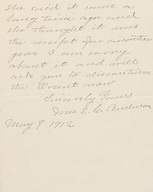 She said it was a
long time ago and
she thought it was
the receipt for another
year I am sorry
about it and will
ask you to discontinue
the
Sincerely Yours
Mrs E. C. Anderson
May 9 1912